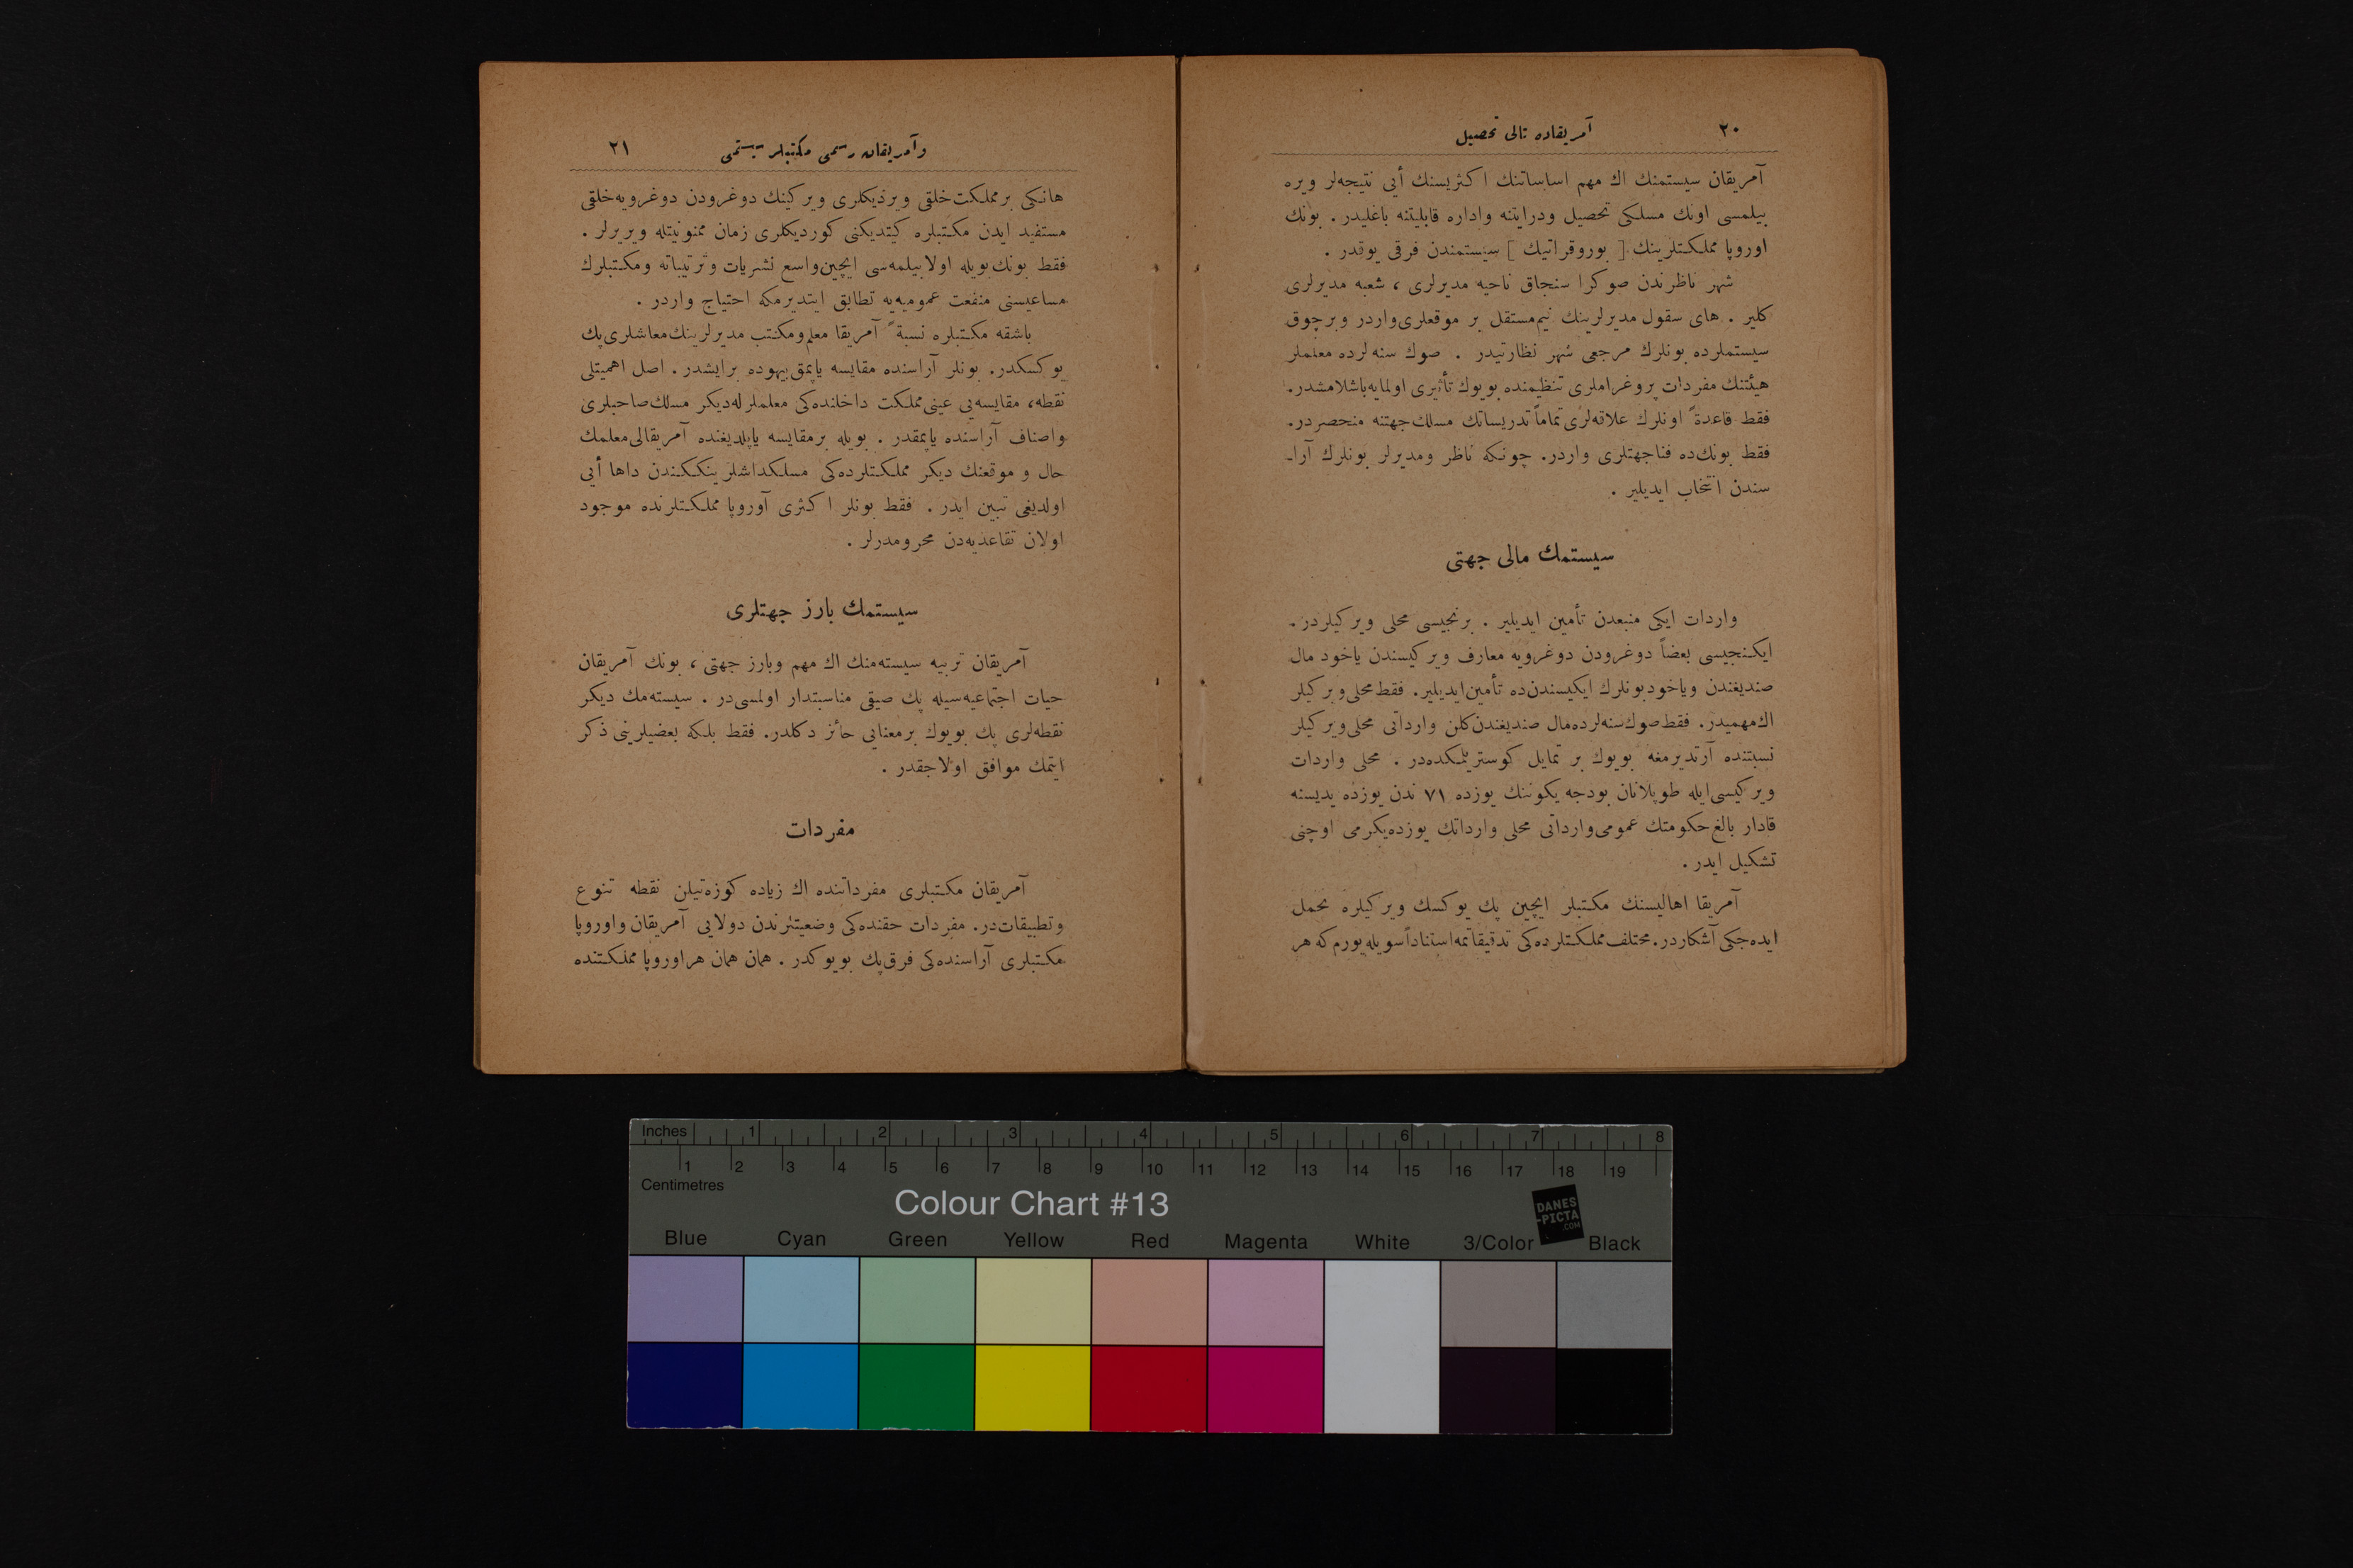 ٢٠
آمريقاده تالى تحصيل
آمريقان سيستمنك اك مهم اساساتنك اكثريسنك أيى نتيجه‌لر ويره
بيلمسى اونك مسلكى تحصيل ودرايتنه واداره قابليتنه باغليدر . بونك
اوروپا مملكتلرينك [ بوروقراتيك ] سيستمندن فرقى يوقدر .
شهر ناظرندن صوكرا سنجاق ناحيه مديرلرى ، شعبه مديرلرى
كلير . هاى سقول مديرلرينك نيم‌مستقل بر موقعلرى‌واردر وبرچوق
سيستملرده بونلرك مرجعى شهر نظارتيدر . صوك سنه‌لرده معلملر
هيئتنك مفردات پروغراملرى تنظيمنده بويوك تأثيرى اولمايه‌باشلامشدر.
فقط قاعدةً اونلرك علاقه‌لرى تماماً تدريساتك مسلك جهتنه منحصردر.
فقط بونك‌ده فناجهتلرى واردر. چونكه ناظر ومديرلر بونلرك آرا-
سندن انتخاب ايديلير .
سيستمك مالى جهتى
واردات ايكى منبعدن تأمين ايديلير . برنجيسى محلى ويركيلردر .
ايكنجيسى بعضاً دوغرودن دوغرويه معارف ويركيسندن ياخود مال
صنديغندن وياخود بونلرك ايكيسندن‌ده تأمين‌ايديلير. فقط محلى ويركيلر
اك‌مهميدر. فقط صوك‌سنه‌لرده‌مال صنديغندن‌كلن وارداتى محلى‌ويركيلر
نسبتنده آرتديرمغه بويوك بر تمايل كوستريلمكده‌در . محلى واردات
ويركيسى‌ايله طوپلانان بودجه يكوننك يوزده ٧١ ندن يوزده يديسنه
قادار بالغ حكومتك عمومى‌وارداتى محلى وارداتك يوزده‌يكرمى اوچنى
تشكيل ايدر .
آمريقا اهاليسنك مكتبلر ايچين پك يوكسك ويركيلره تحمل
ايده‌جكى آشكاردر. مختلف مملكتلرده‌كى تدقيقاتمه‌استناداً سويله‌يورم‌كه هر
وآمريقان رسمى مكتبلر سيستمى
٢١
هانكى بر مملكت خلقى ويرديكلرى ويركينك دوغرودن دوغرويه‌خلقى
مستفيد ايدن مكتبلره كيتديكنى كورديكلرى زمان ممنونيتله ويريرلر .
فقط بونك‌بويله اولابيلمه‌سى ايچين‌واسع نشريات وترتيباته ومكتبلرك
مساعيسنى منفعت عموميه‌يه تطابق ايتديرمكه احتياج واردر .
باشقه مكتبلره نسبةً آمريقا معلم‌ومكتب مديرلرينك‌معاشلرى‌پك
يوكسكدر. بونلر آراسنده مقايسه ياپمق‌بيهوده برايشدر . اصل اهميتلى
نقطه، مقايسه‌يى عينى‌مملكت داخلنده‌كى معلملرله‌ديكر مسلك‌صاحبلرى
واصناف آراسنده ياپمقدر . بويله برمقايسه ياپلديغنده آمريقالى‌معلمك
حال و موقعنك ديكر مملكتلرده‌كى مسلكداشلرينككندن داها أيى
اولديغى تبين ايدر . فقط بونلر اكثرى آوروپا مملكتلرنده موجود
اولان تقاعديه‌دن محرومدرلر .
سيستمك بارز جهتلرى
آمريقان تربيه سيسته‌منك اك مهم وبارز جهتى ، بونك آمريقان
حيات اجتماعيه‌سيله پك صيقى مناسبتدار اولمسى‌در . سيسته‌مك ديكر
نقطه‌لرى پك بويوك برمعنايى حائز دكلدر. فقط بلكه بعضيلرينى ذكر
ايتمك موافق اولاجقدر .
مفردات
آمريقان مكتبلرى مفرداتنده اك زياده كوزه‌تيلن نقطه تنوع
وتطبيقات‌در. مفردات حقنده‌كى وضعيتلرندن دولايى آمريقان واوروپا
مكتبلرى آراسنده‌كى فرق‌پك بويوكدر . همان همان هراوروپا مملكتنده
Inches 1 2 3 4 5 6 7 8
1 2 3 4 5 6 7 8 9 10 11 12 13 14 15 16 17 18 19
Centimetres
Colour Chart #13
DANES
-PICTA
.COM
Blue Cyan Green Yellow Red Magenta White 3/Color Black